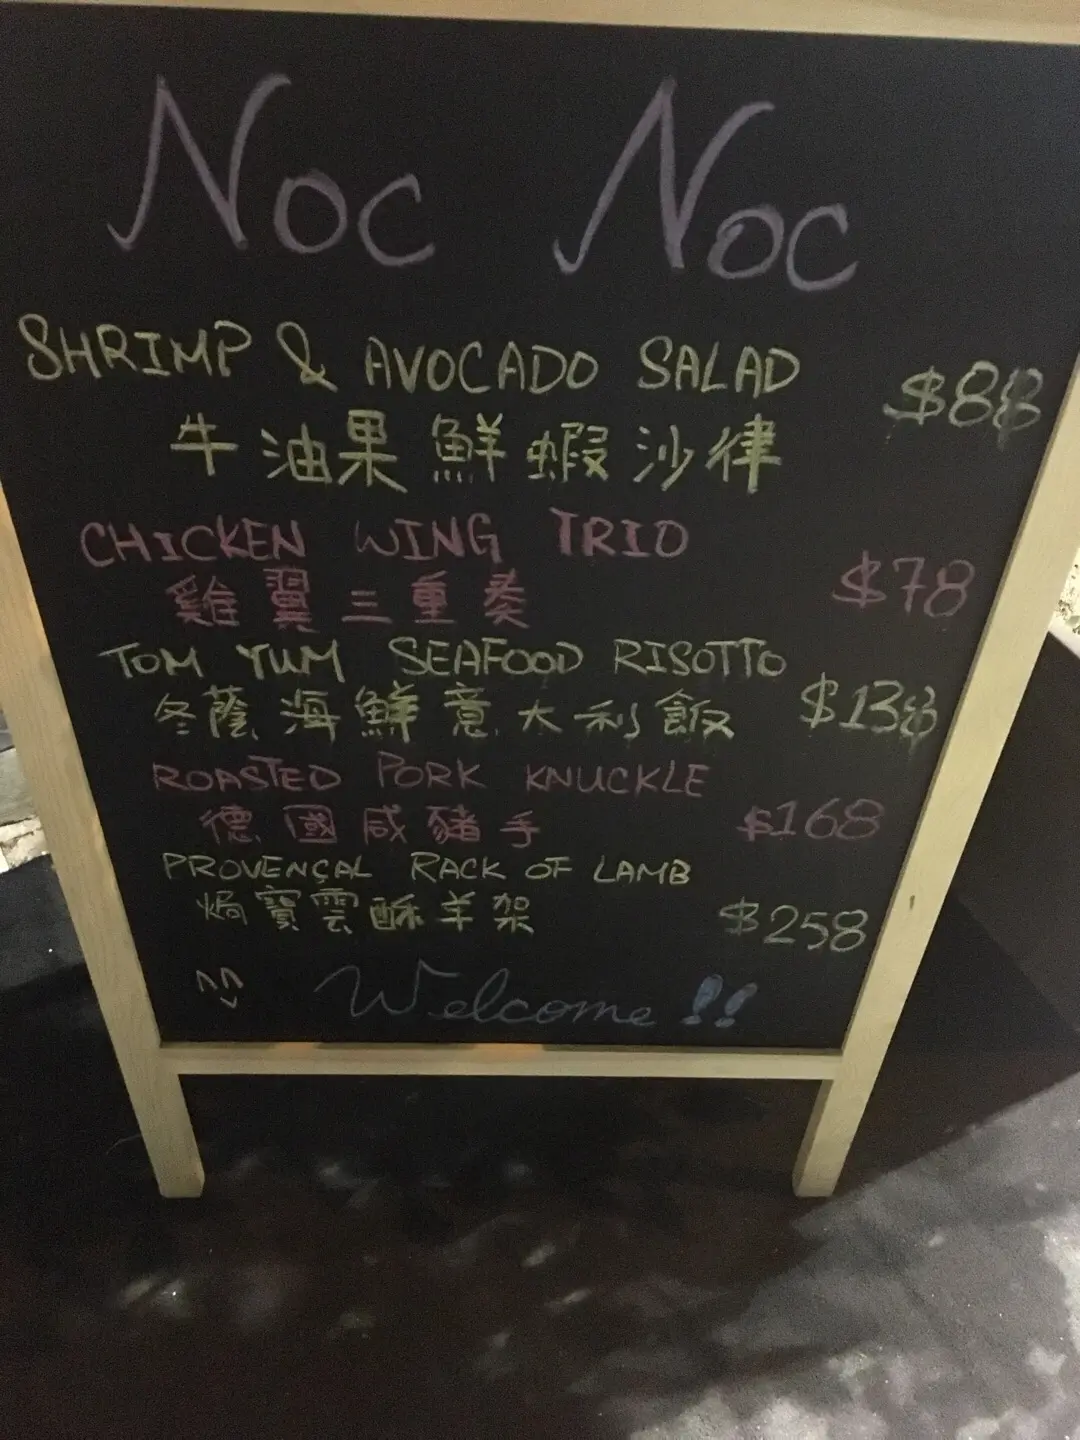 Noc Noc
SHRIMP & AVOCADO SALAD $88
牛油果鮮蝦沙律
CHICKEN WING TRIO
雞翼三重奏 $78
TOM YUM SEAFOOD RISOTTO
冬蔭海鮮意大利飯 $138
ROASTED PORK KNUCKLE
德國咸豬手 $168
PROVENÇAL RACK OF LAMB
焗寶雲酥羊架 $258
Welcome!!